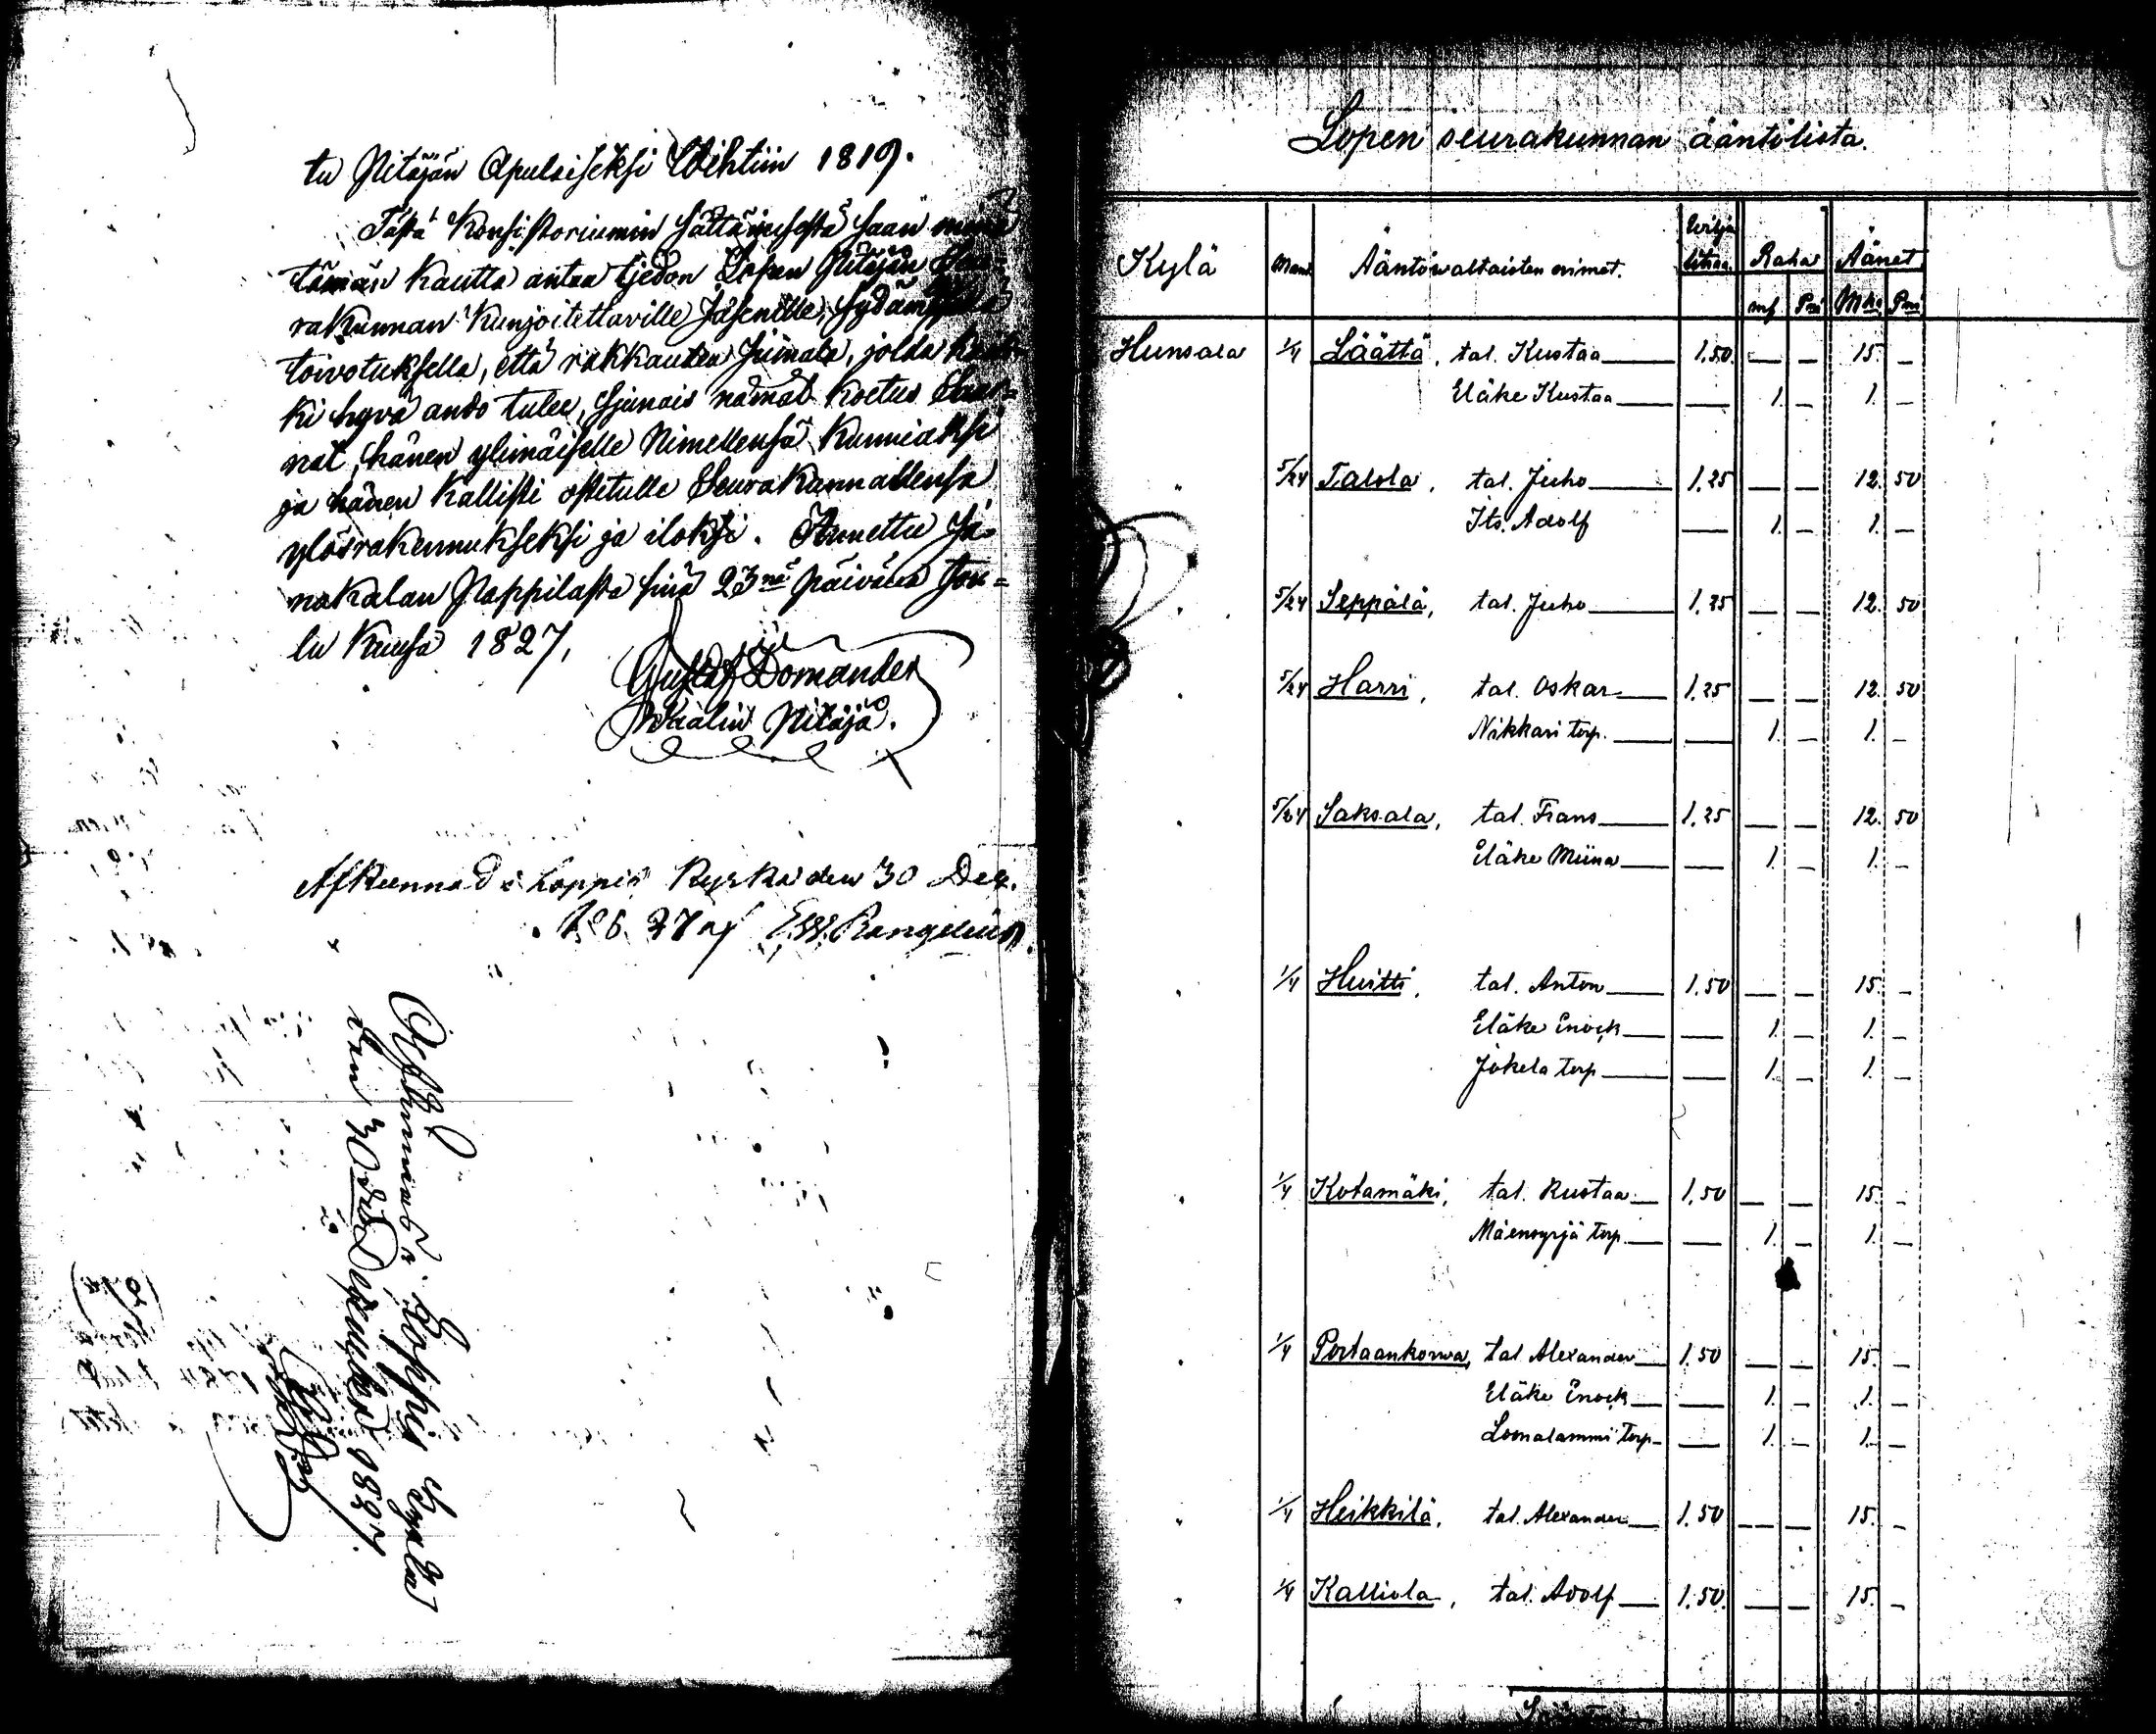 tu Pitäjän Apulaiseksi Wihtiin 1819.
Tästä Konsistoriumin
tämän kautta antaa tjedon Lopen Pitäjän Seu-
rakunnan Kunjoitettaville Jäsenille,
toivotuksella, että rakkauden Jumala, jolda
ki hyvä ando tulee, sjunais nämät koetus Saar-
nat, hänen ylimäiselle Nimellensä Kunniaksi
ja hänen kallisti ostetulle Seurakunnallensa
ylösrakennukseksi ja iloksi. Annettu Ja-
nakalan Pappilasta sinä 23nä päivänä Jou-
lu Kuusa 1827.
Gustaf Domander
Pitäjä.
Afkunnad i Loppis Kyrka den 30 Dec.
1827 af Rangelius.
Afkunnad i Loppis Kyrka
den 30 December 1827.
Lopen seurakunnan ääntölista.
Kylä Man. Ääntöwaltaisten nimet. Wilja litraa. Raha Äänet
mf Pni Mka Pni
Hunsala 1/4 Läättä, tal. Kustaa — 1.50 — — 15. —
Eläke Kustaa — — 1. — 1. —
" 5/24 Talola, tal. Juho — 1.25 — — 12. 50
Its. Adolf — 1. — 1. —
" 5/24 Seppälä, tal. Juho — 1.25 — — 12. 50
" 5/24 Harri, tal. Oskar — 1.25 — — 12. 50
Nikkari torp. — — 1. — 1. —
" 5/24 Saksala, tal. Frans — 1.25 — — 12. 50
Eläke Miina — — 1. — 1. —
" 1/4 Huitti, tal. Anton — 1.50 — — 15. —
Eläke Enock — — 1. — 1. —
Jokela torp — — 1. — 1. —
" 1/4 Kotamäki, tal. Kustaa — 1.50 — — 15. —
Mäensyrjä torp. — — 1. — 1. —
" 1/4 Portaankorwa, tal Alexander — 1.50 — — 15. —
Eläke Enock — — 1. — 1. —
Luonalammi torp — — 1. — 1. —
" 1/4 Heikkilä, tal. Alexander — 1.50 — — 15. —
" 1/4 Kalliola, tal. Adolf — 1.50. — — 15. —